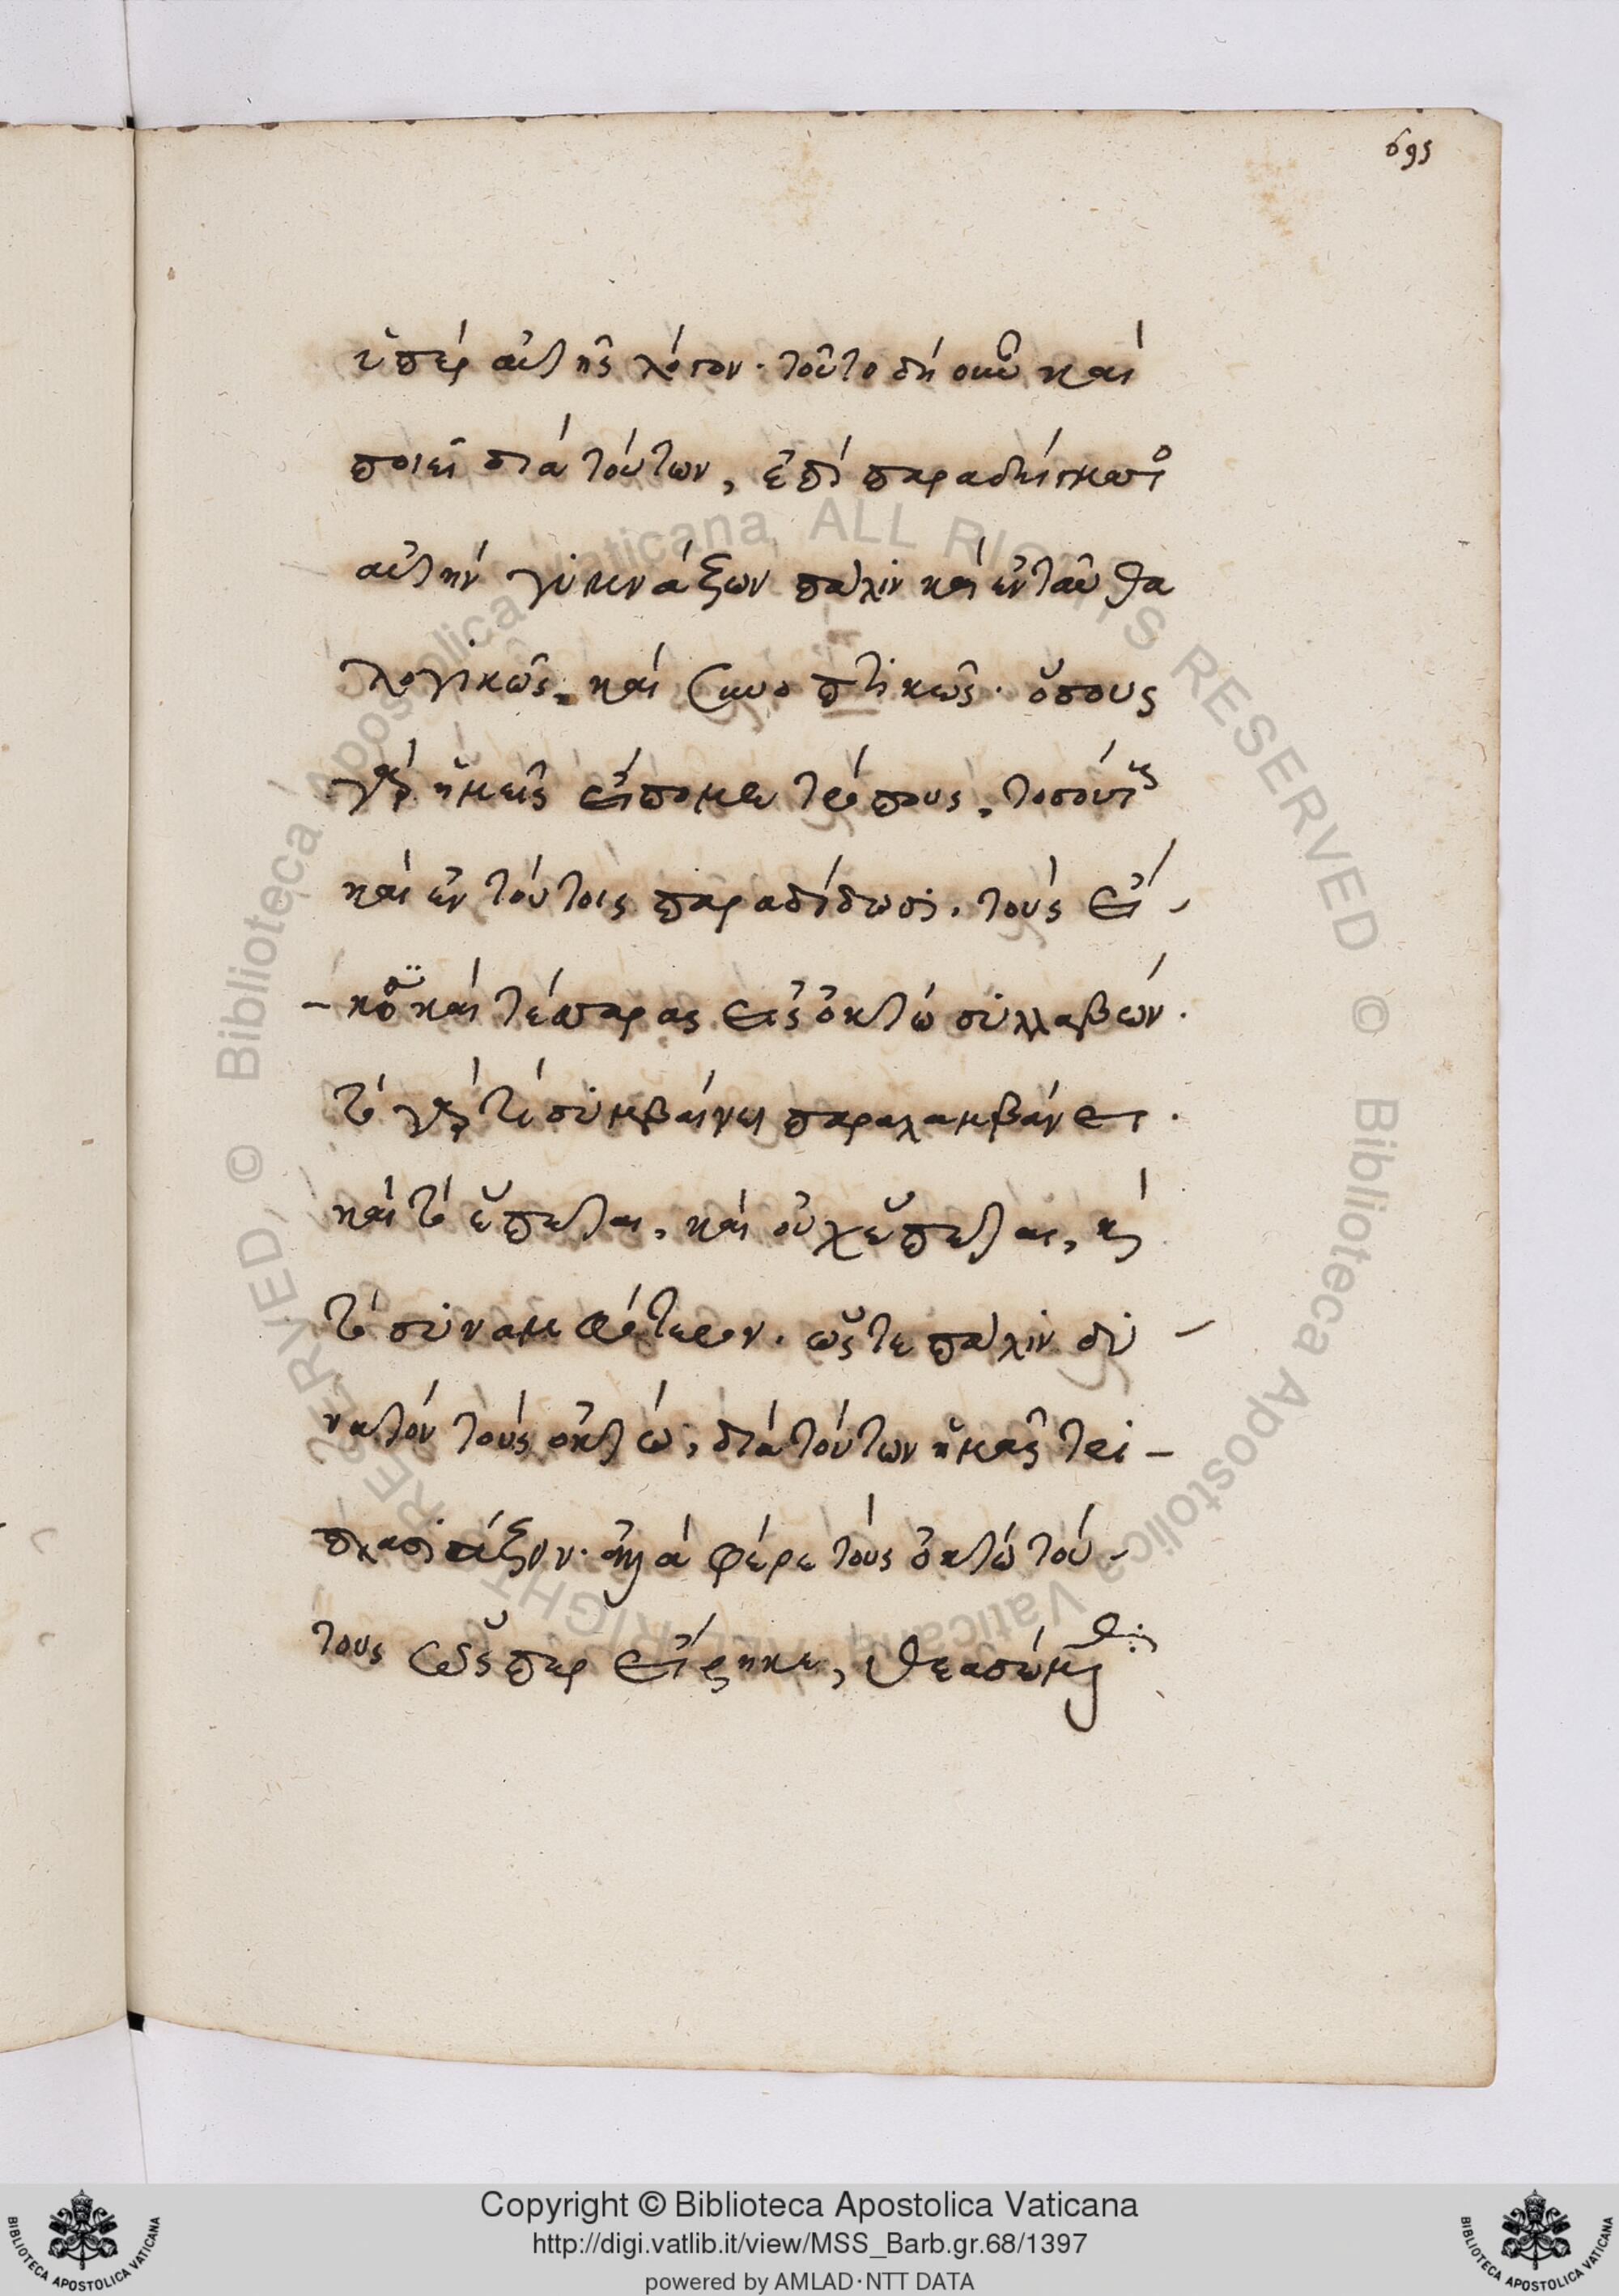 695
ὑπὲρ αὐτῆς λόγον· τοῦτο δὴ οὖν καὶ
ποιεῖ διὰ τούτων, ἐπὶ παραδείγματο
αὐτὴν γυμνάζων πάλιν καὶ ἐνταῦθα
λογικῶς, καὶ συνοπτικῶς· ὅσους
γὰρ ἡμεῖς εἴπομεν τρόπους, τοσούτους
καὶ ἐν τούτοις παραδίδωσι, τοὺς εἴ-
-κοσι καὶ τέσσαρας εἰς ὀκτὼ συλλαβών·
τό γὰρ τί συμβαίνει παραλαμβάνει·
καὶ τὸ ἕπεται, καὶ οὐχ ἕπεται, καὶ
τὸ συναμφότερον· ὥστε πάλιν δυ-
νατὸν τοὺς ὀκτώ, διὰ τούτων ἡμᾶς τρι-
πλασιάζειν· ἀλλὰ φέρε τοὺς ὀκτὼ τού-
τους ὥσπερ εἴρηκε, θεασώμεθα
Copyright © Biblioteca Apostolica Vaticana
http://digi.vatlib.it/view/MSS_Barb.gr.68/1397
powered by AMLAD·NTT DATA
BIBLIOTECA APOSTOLICA VATICANA
BIBLIOTECA APOSTOLICA VATICANA
© Biblioteca Apostolica Vaticana, ALL RIGHTS RESERVED
© Biblioteca Apostolica Vaticana, ALL RIGHTS RESERVED